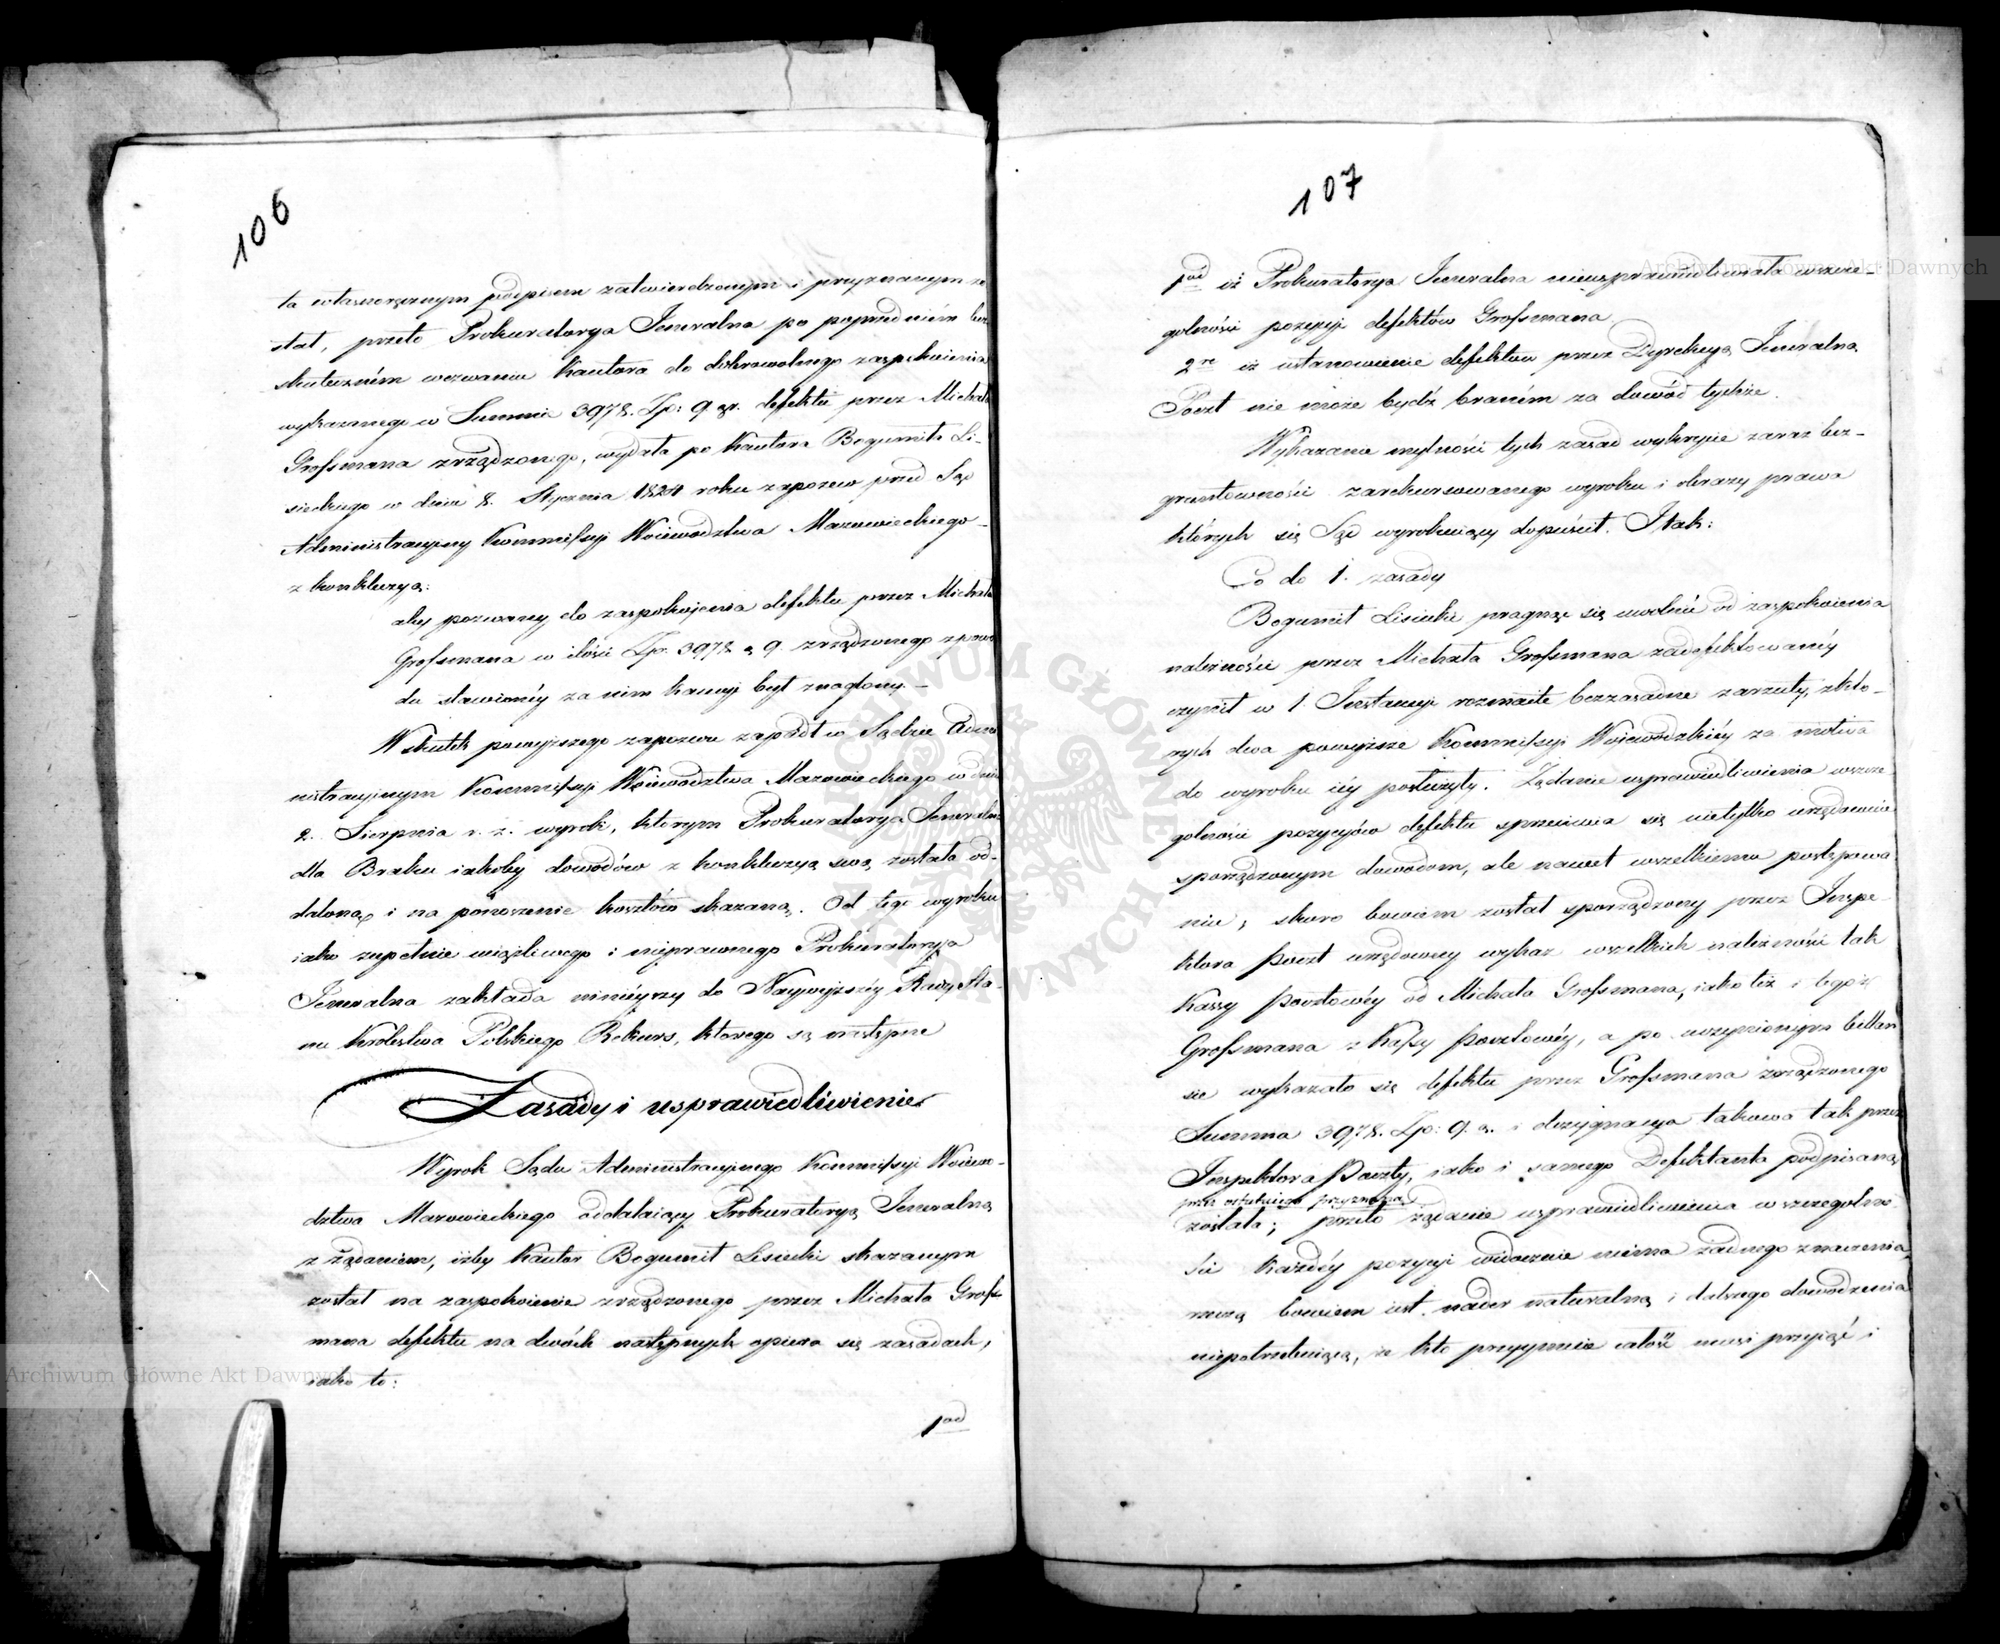 106
ta własnoręcznym podpisem zatwierdzonym i przyznanym zo
stał, przeto Prokuratorya Jeneralna po poprzedniém bez
skuteczném wezwaniu Kantora do dobrowolnego zaspokoienia
wykazanego w Summie 3978. Zp: 9 gr. defektu przez Michała
Grossmana zrządzonego, wydała po Kantora Bogumiła Li-
sieckiego w dniu 8. Stycznia 1824 roku zapozew przed Sąd
Administracyiny Kommissyi Woiewodztwa Mazowieckiego
z konkluzyą:
aby pozwany do zaspokoienia defektu przez Michała
Grossmana w ilości Zp. 3978 g 9. zrządzonego z powo
du stawionéy za nim kaucyi był znaglony. –
W skutek powyższego zapozwu zapadł w Sądzie Admi
nistracyinym Kommissyi Woiewodztwa Mazowieckiego w dniu
2. Sierpnia r. z. wyrok, którym Prokuratorya Jeneralna
dla Braku iakoby dowodów z konkluzyą swą została od-
daloną i na ponoszenie kosztów skazaną. Od tego wyroku
iako zupełnie uciążliwego i nieprawnego Prokuratorya
Jeneralna zakłada ninieyszy do Naywyższéy Rady Sta-
nu Królestwa Polskiego Rekurs, którego są następne
Zasady i usprawiedliwienie
Wyrok Sądu Administracyinego Kommissyi Woiewo-
dztwa Mazowieckiego oddalaiący Prokuratoryą Jeneralną
z żądaniem, iżby Kantor Bogumił Lisiecki skazanym
został na zaspokoienie zrządzonego przez Michała Gross-
mana defektu na dwóch następnych opiera się zasadach,
iako to:
1od
107
1od iż Prokuratorya Jeneralna nieusprawiedliwiała wszcze-
gólności pozycyi defektów Grossmana
2re iż ustanowienie defektu przez Dyrekcyą Jeneralną
Poczt nie może bydź braném za dowód tychże.
Wykazanie mylności tych zasad wykryie zaraz bez-
gruntowność zarekursowanego wyroku i obrazy prawa
których się Sąd wyrokuiący dopuścił. I tak:
Co do 1. zasady
Bogumił Lisiecki pragnąc się uwolnić od zaspokoienia
należności przez Michała Grossmana zadefektowanéy
czynił w 1. Instancyi rozmaite bezzasadne zarzuty, z któ-
rych dwa powyższe Kommissyi Woiewodzkiéy za motiva
do wyroku iéy posłużyły. Żądanie usprawiedliwienia wszcze
gólności pozycyów defektu sprzeciwia się nietylko urzędownie
sporządzonym dowodom, ale nawet wszelkiemu postępowa
niu, skoro bowiem został sporządzony przez Inspe-
ktora Poczt urzędowny wykaz wszelkich należności tak
Kassy Pocztowéy od Michała Grossmana, iako téż i tegoż
Grossmana z Kassy Pocztowéy, a po uczynionym billan
sie wykazało się defektu przez Grossmana zrządzonego
Summa 3978. Zp: 9. g. i dezygnacya takowa tak przez
Inspektora Poczty, iako i samego Defektanta podpisaną
przez ostatniego przyznaną
została; przeto żądanie usprawiedliwienia w szczególno-
ści każdéy pozycyi widocznie niema żadnego znaczenia,
rzeczą bowiem iest nader naturalną i dalszego dowodzenia
niepotrzebuiącą, iż kto przyymuie całość musi przyiąć i